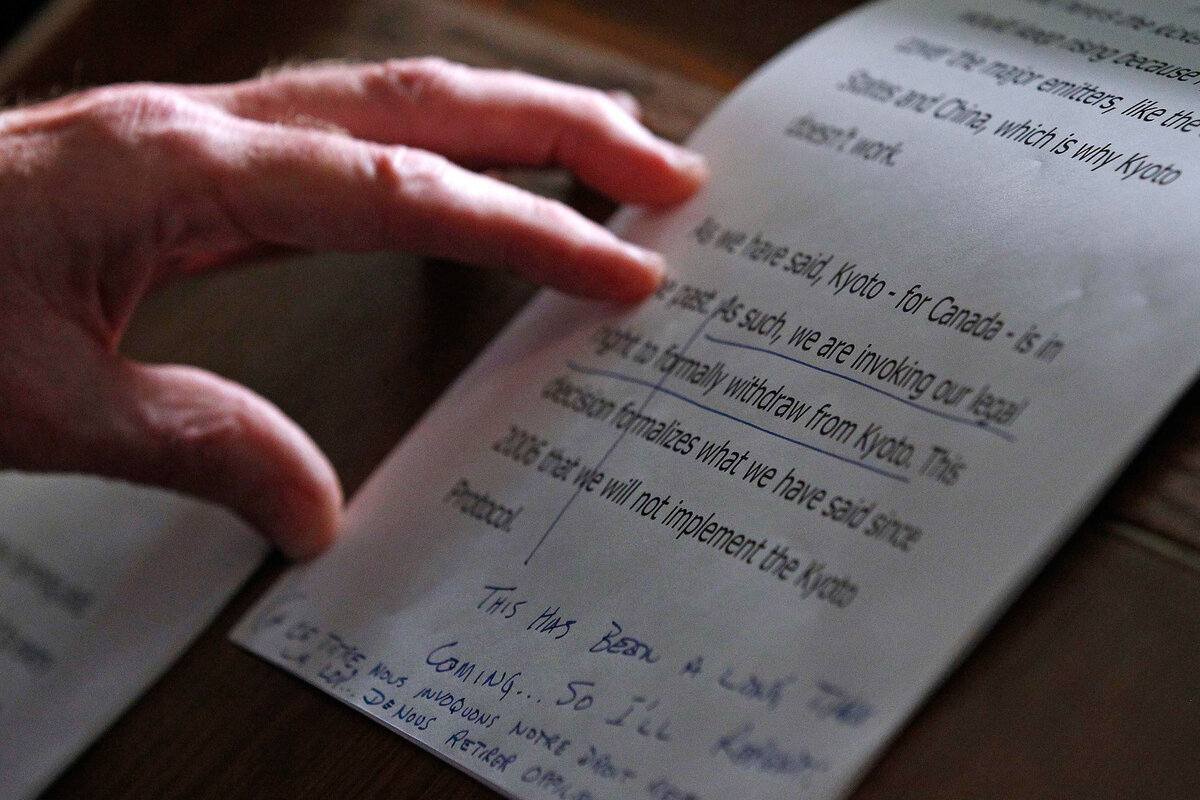 would keep rising because
cover the major emitters, like the
States and China, which is why Kyoto
doesn't work.
As we have said, Kyoto - for Canada - is in
past. As such, we are invoking our legal
right to formally withdraw from Kyoto. This
decision formalizes what we have said since
2006 that we will not implement the Kyoto
Protocol.
THIS HAS BEEN A LONG TIME
COMING... SO I'LL REPEAT
CE TITRE NOUS INVOQUONS NOTRE DROIT
LA LOI... DE NOUS RETIRER